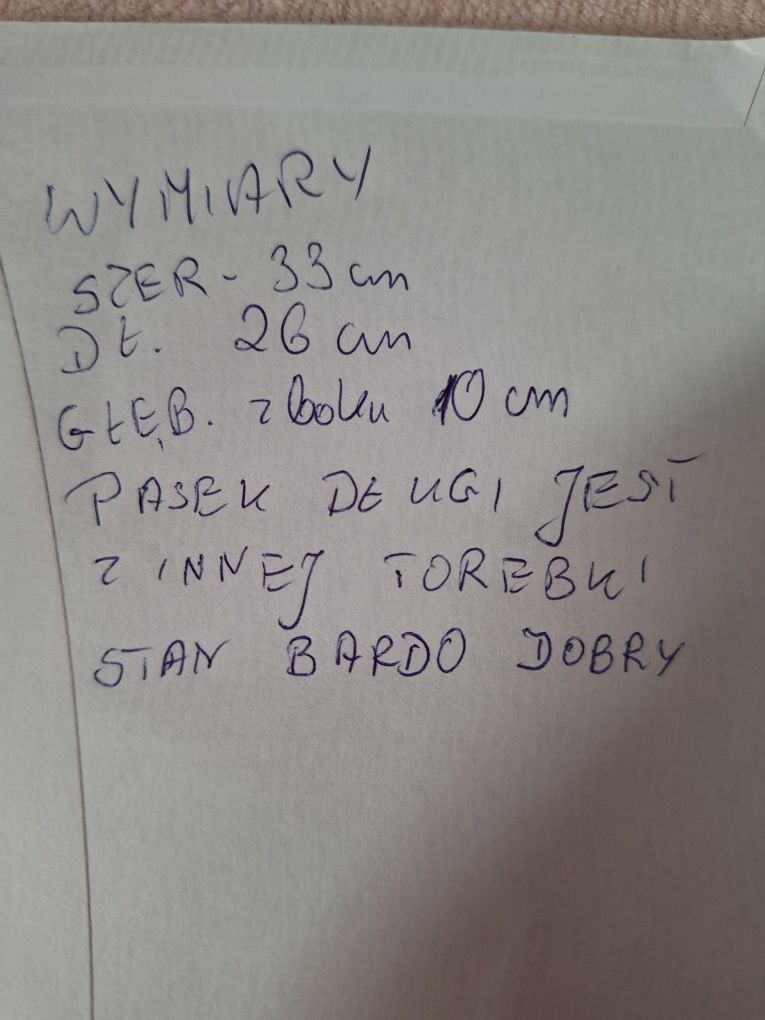 WYMIARY
SZER - 33 cm
DŁ. 26 cm
GŁĘB. z boku 10 cm
PASEK DŁUGI JEST
Z INNEJ TOREBKI
STAN BARDO DOBRY